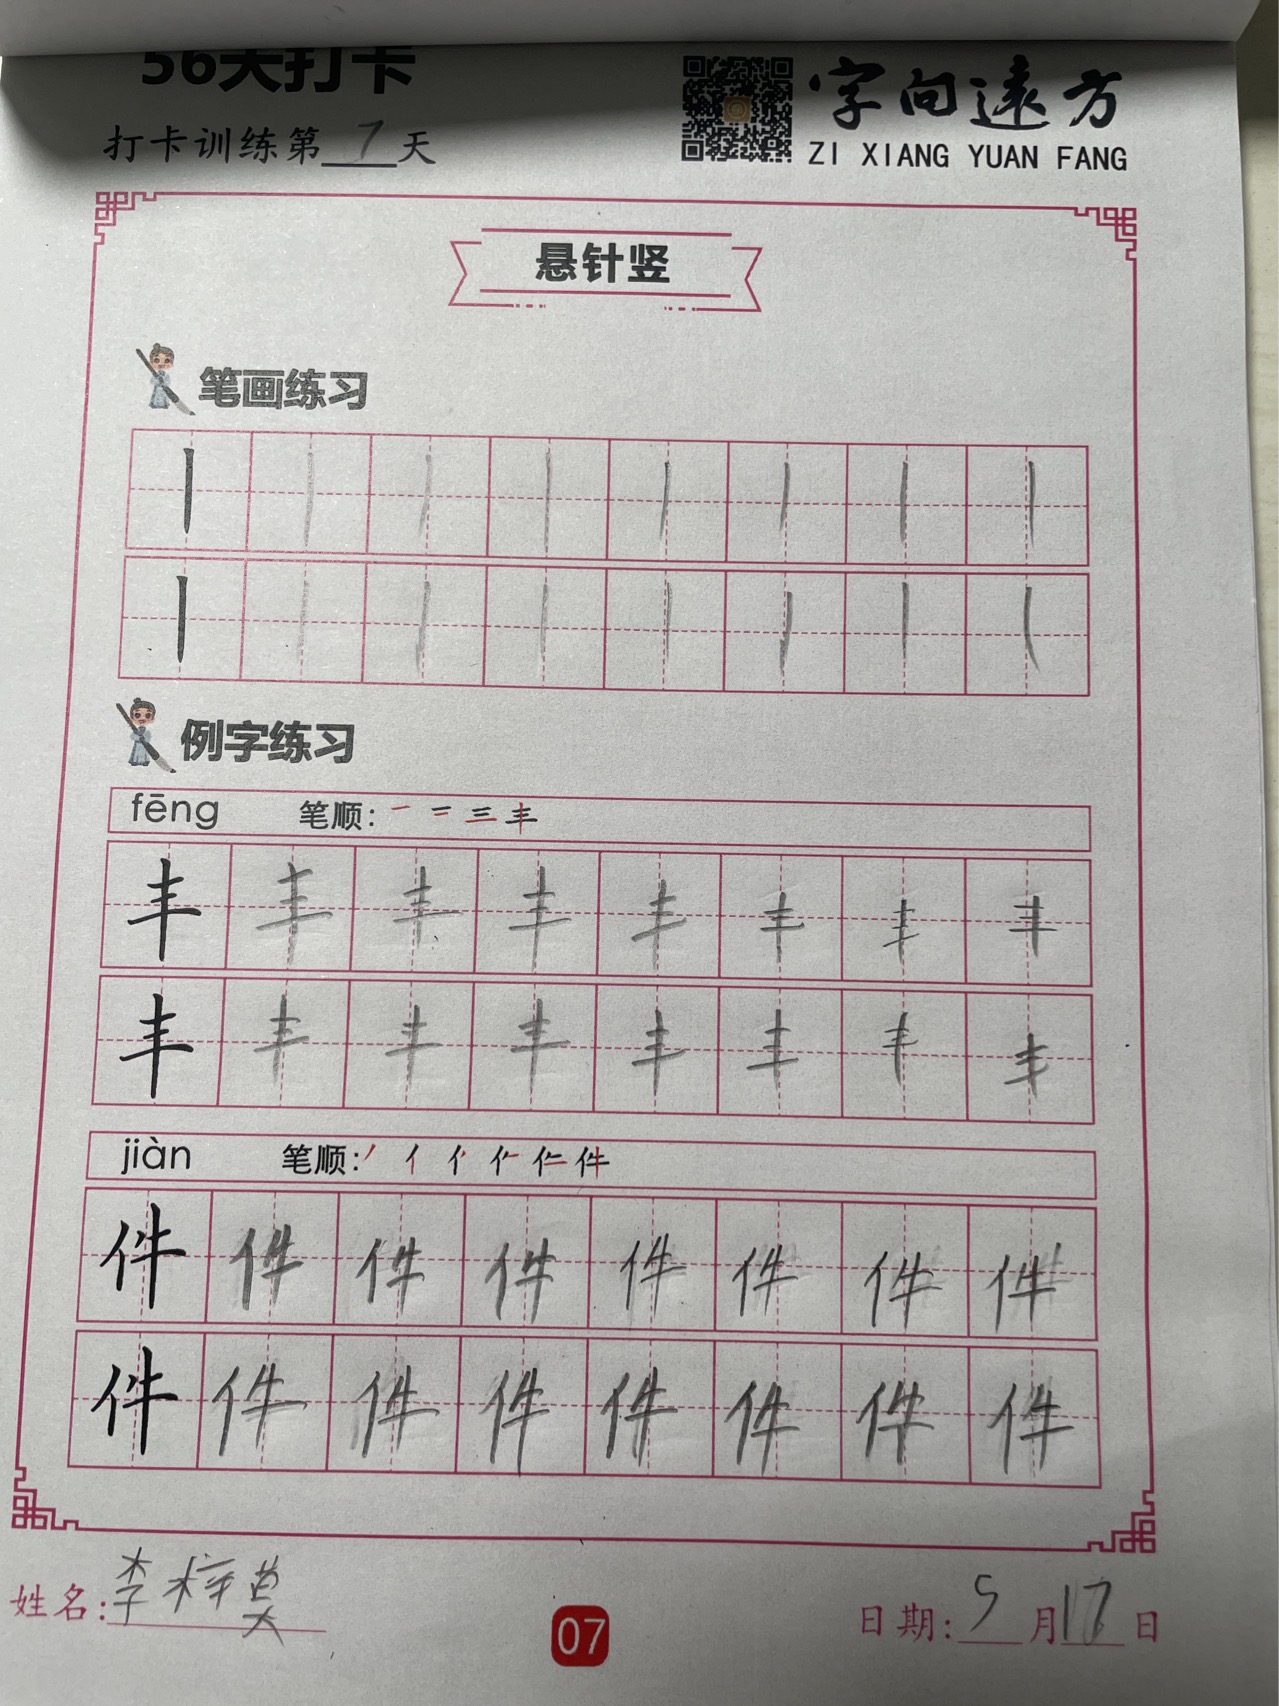 56天打卡
打卡训练第7天
字向遠方
ZI XIANG YUAN FANG
悬针竖
笔画练习
丨丨丨丨丨丨丨丨
丨丨丨丨丨丨丨丨
例字练习
fēng 笔顺: 一 二 三 丰
丰丰丰丰丰丰丰丰
丰丰丰丰丰丰丰丰
jiàn 笔顺: 丿 亻 件
件件件件件件件件
件件件件件件件件
姓名:李梓
07
日期:5月17日